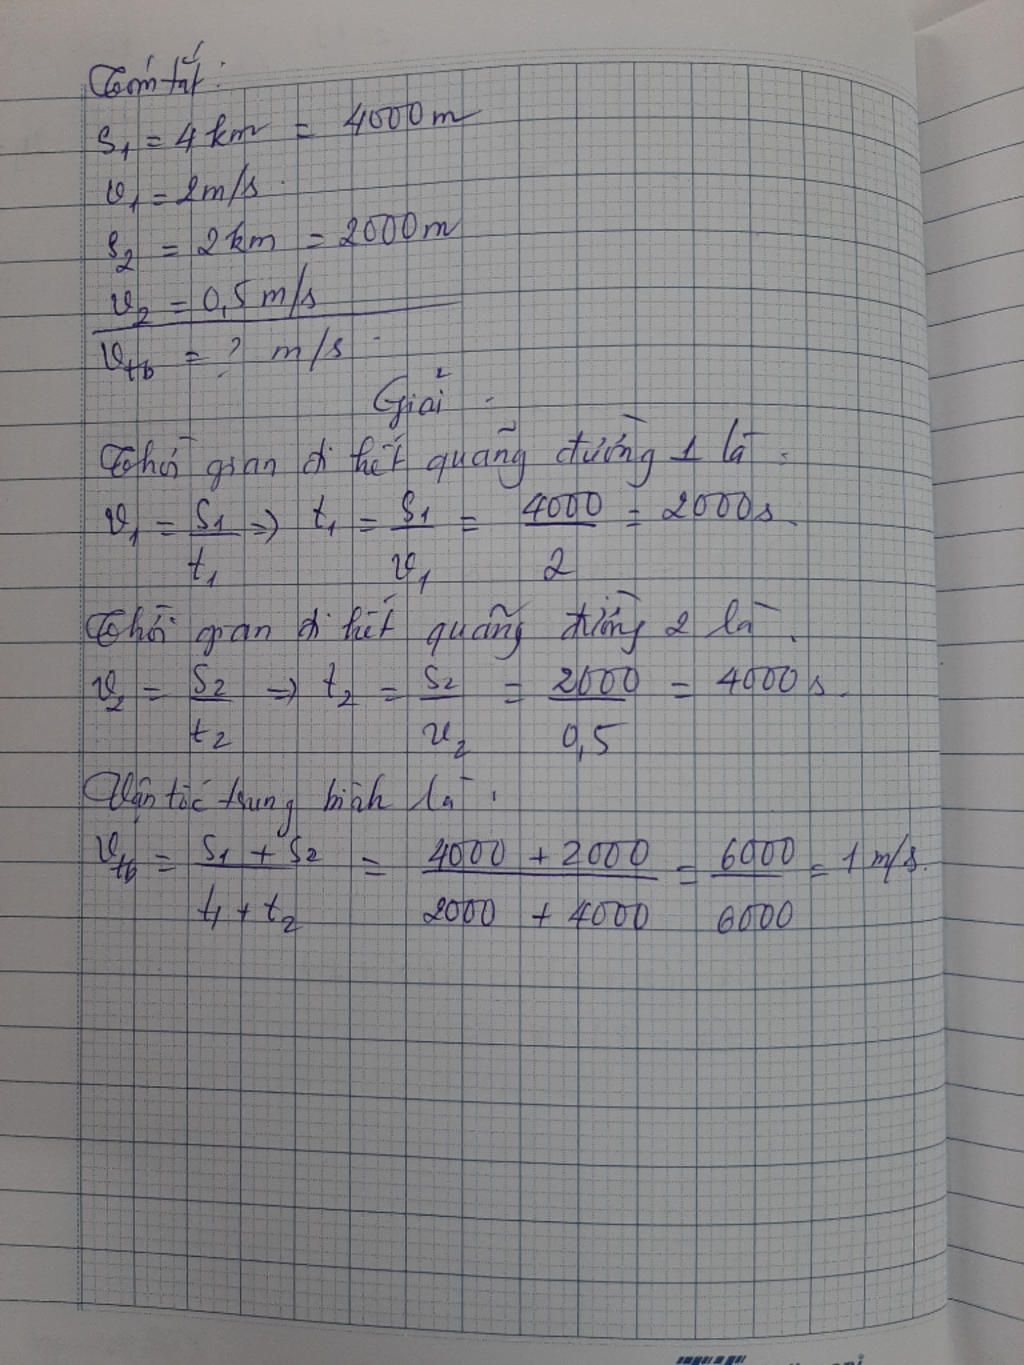 Tóm tắt:
S₁ = 4 km = 4000 m
v₁ = 2 m/s.
S₂ = 2 km = 2000 m
v₂ = 0,5 m/s
vtb = ? m/s.
Giải.
Thời gian đi hết quãng đường 1 là:
v₁ = S₁/t₁ => t₁ = S₁/v₁ = 4000/2 = 2000 s.
Thời gian đi hết quãng đường 2 là.
v₂ = S₂/t₂ => t₂ = S₂/v₂ = 2000/0,5 = 4000 s.
Vận tốc trung bình là:
vtb = S₁ + S₂/t₁ + t₂ = 4000 + 2000/2000 + 4000 = 6000/6000 = 1 m/s.